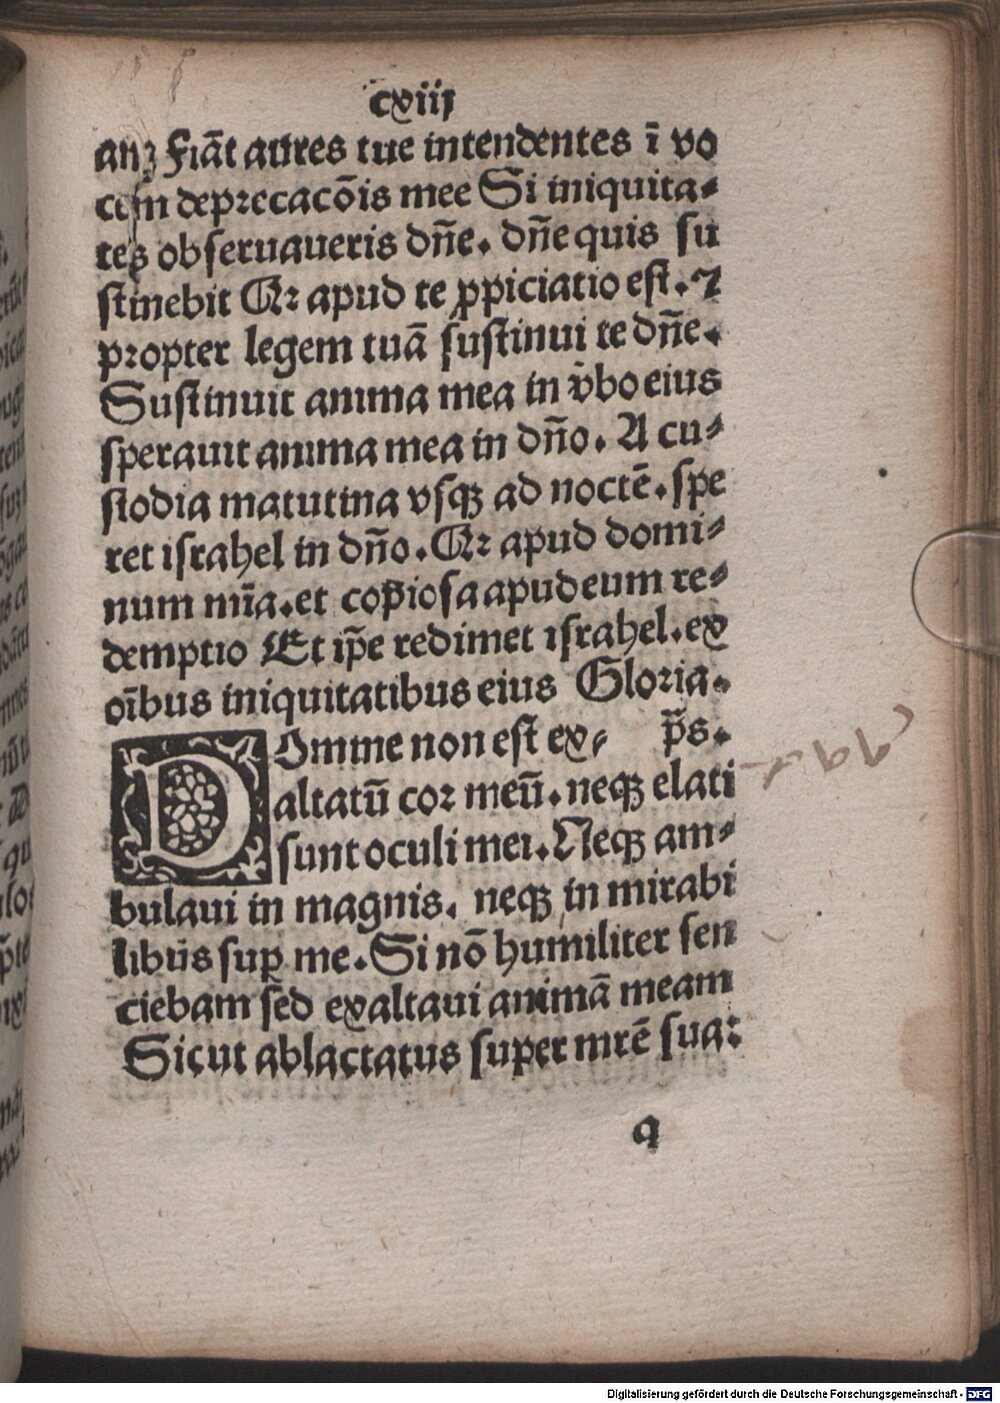 cxiij
anꝫ Fiāt aures tue intendentes ī vo
cem deprecacōis mee Si iniquita⸗
tes obseruaueris dn̄e. dn̄e quis su
stinebit Qꝛ apud te ꝓpiciatio est. ⁊
propter legem tuā sustinui te dn̄e.
Sustinuit anima mea in v̄bo eius
sperauit anima mea in dn̄o. A cu⸗
stodia matutina vsqꝫ ad noctē. spe
ret israhel in dn̄o. Qꝛ apud domi⸗
num mīa. et copiosa apud eum re⸗
demptio Et ip̄e redimet israhel. ex
oībus iniquitatibus eius Gloria.
DOmine non est ex⸗ p̄s.
altatū cor meū. neqꝫ elati
sunt oculi mei. Neqꝫ am⸗
bulaui in magnis. neqꝫ in mirabi
libus suꝑ me. Si nō humiliter sen
ciebam sed exaltaui animā meam
Sicut ablactatus super mr̄ē sua:
q
Digitalisierung gefördert durch die Deutsche Forschungsgemeinschaft - DFG